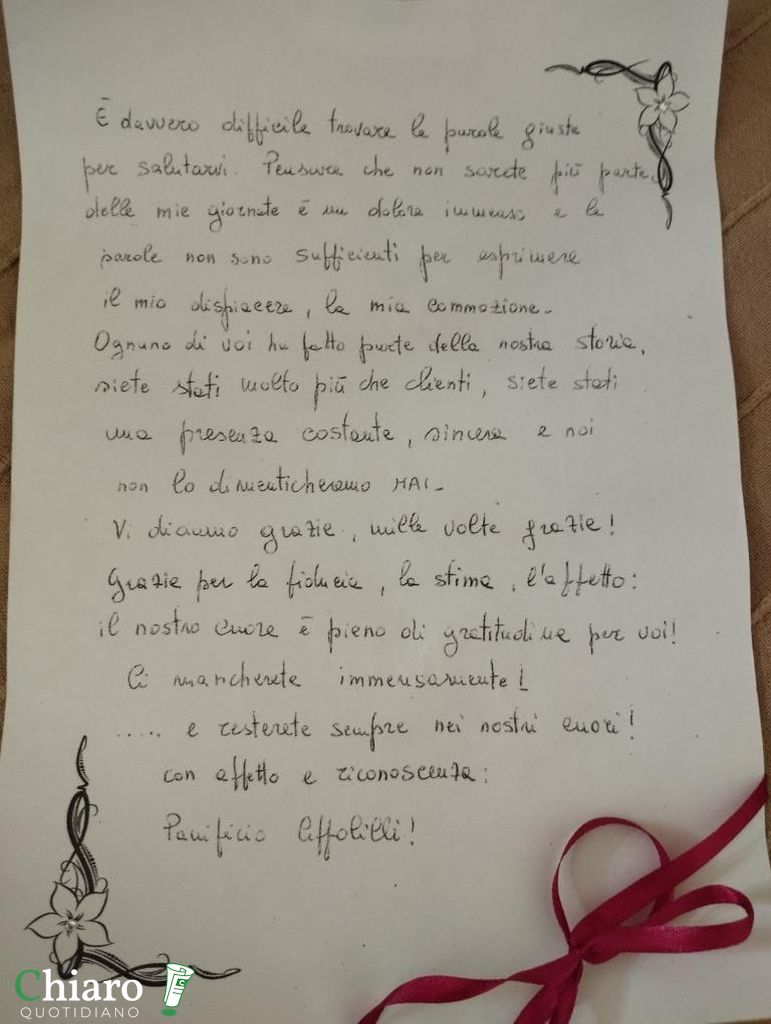 È davvero difficile trovare le parole giuste
per salutarvi. Pensare che non sarete più parte
delle mie giornate è un dolore immenso e le
parole non sono sufficienti per esprimere
il mio dispiacere, la mia commozione.
Ognuno di voi ha fatto parte della nostra storia,
siete stati molto più che clienti, siete stati
una presenza costante, sincera e noi
non lo dimenticheremo MAI.
Vi diciamo grazie, mille volte grazie!
Grazie per la fiducia, la stima, l'affetto:
il nostro cuore è pieno di gratitudine per voi!
Ci mancherete immensamente!
..... e resterete sempre nei nostri cuori!
con affetto e riconoscenza:
Panificio
Chiaro
QUOTIDIANO